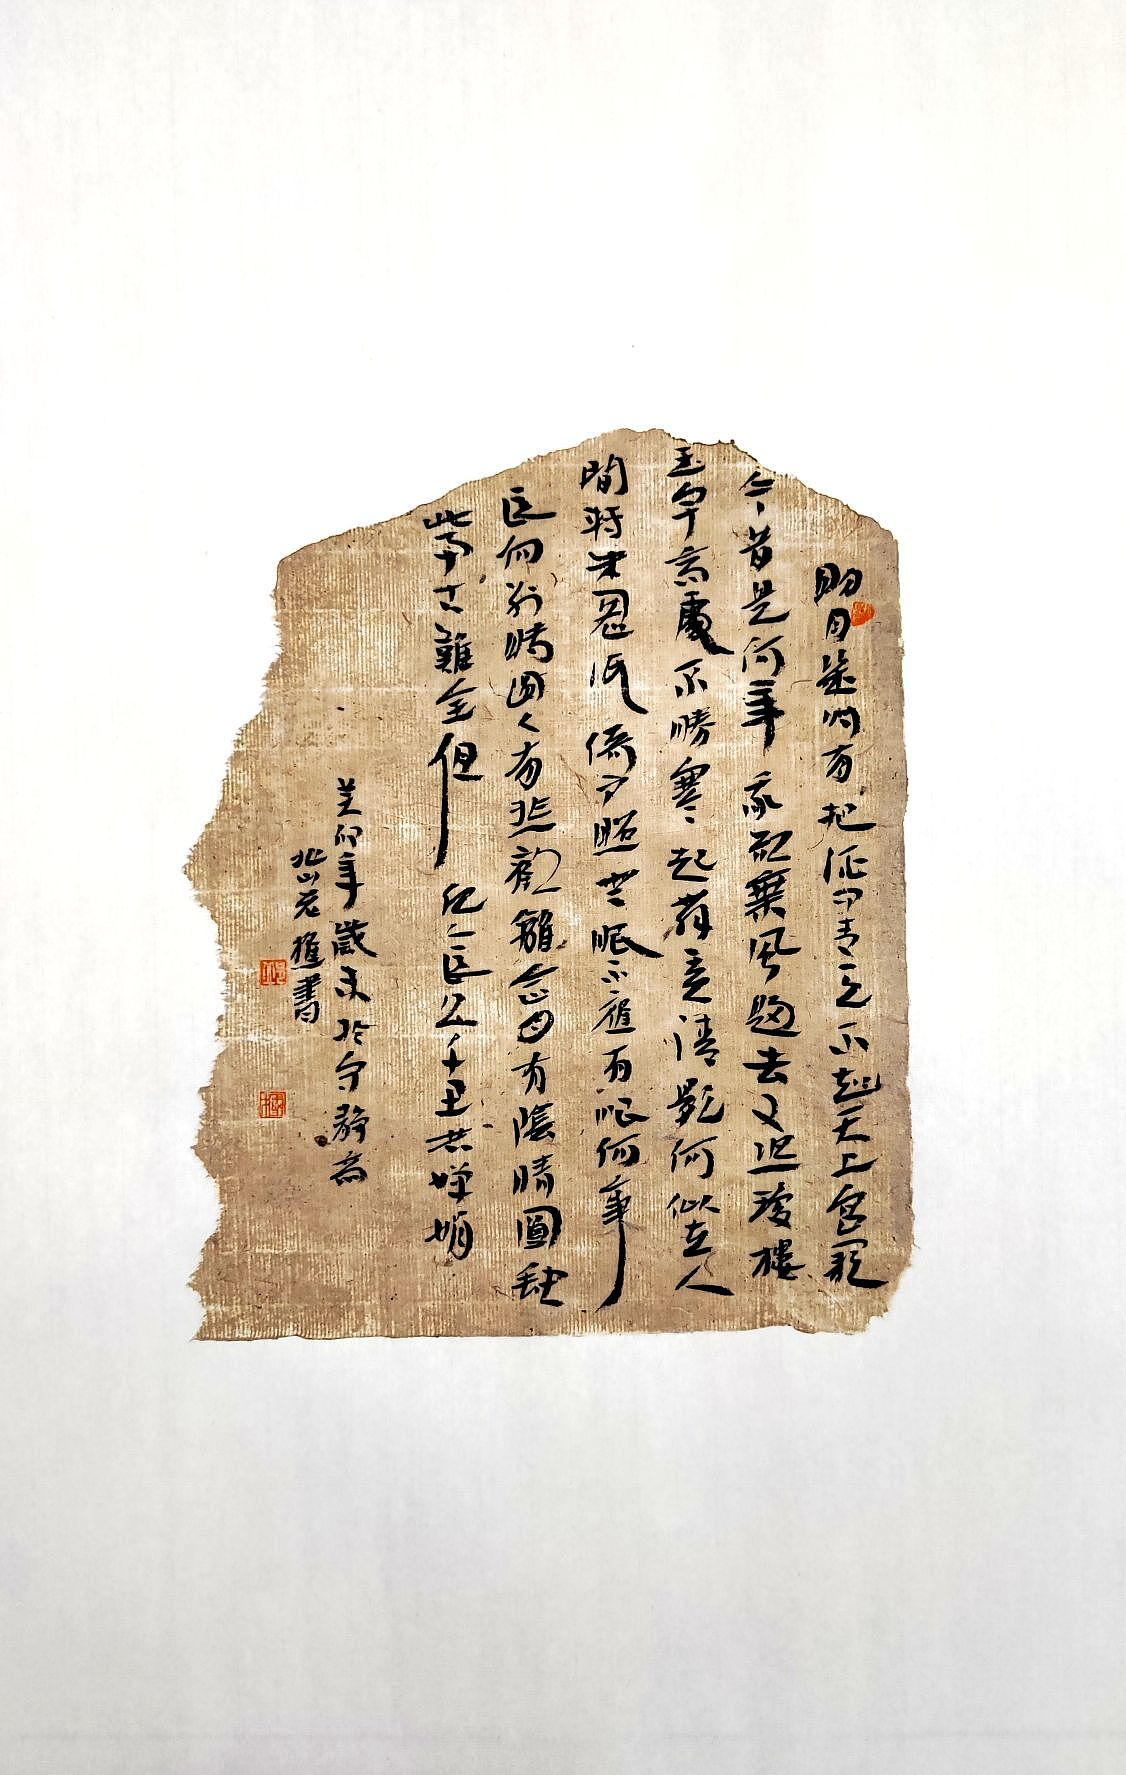 明月幾时有把酒问青天不知天上宫阙
今昔是何年我欲乘风歸去又恐瓊樓
玉宇高處不勝寒起舞弄清影何似在人
間转朱阁低绮户照无眠不應有恨何事
長向别時圆人有悲歡離合月有陰晴圓缺
此事古難全但愿人長久千里共婵娟
癸卯年歲末於宁静斋
北山老樵書